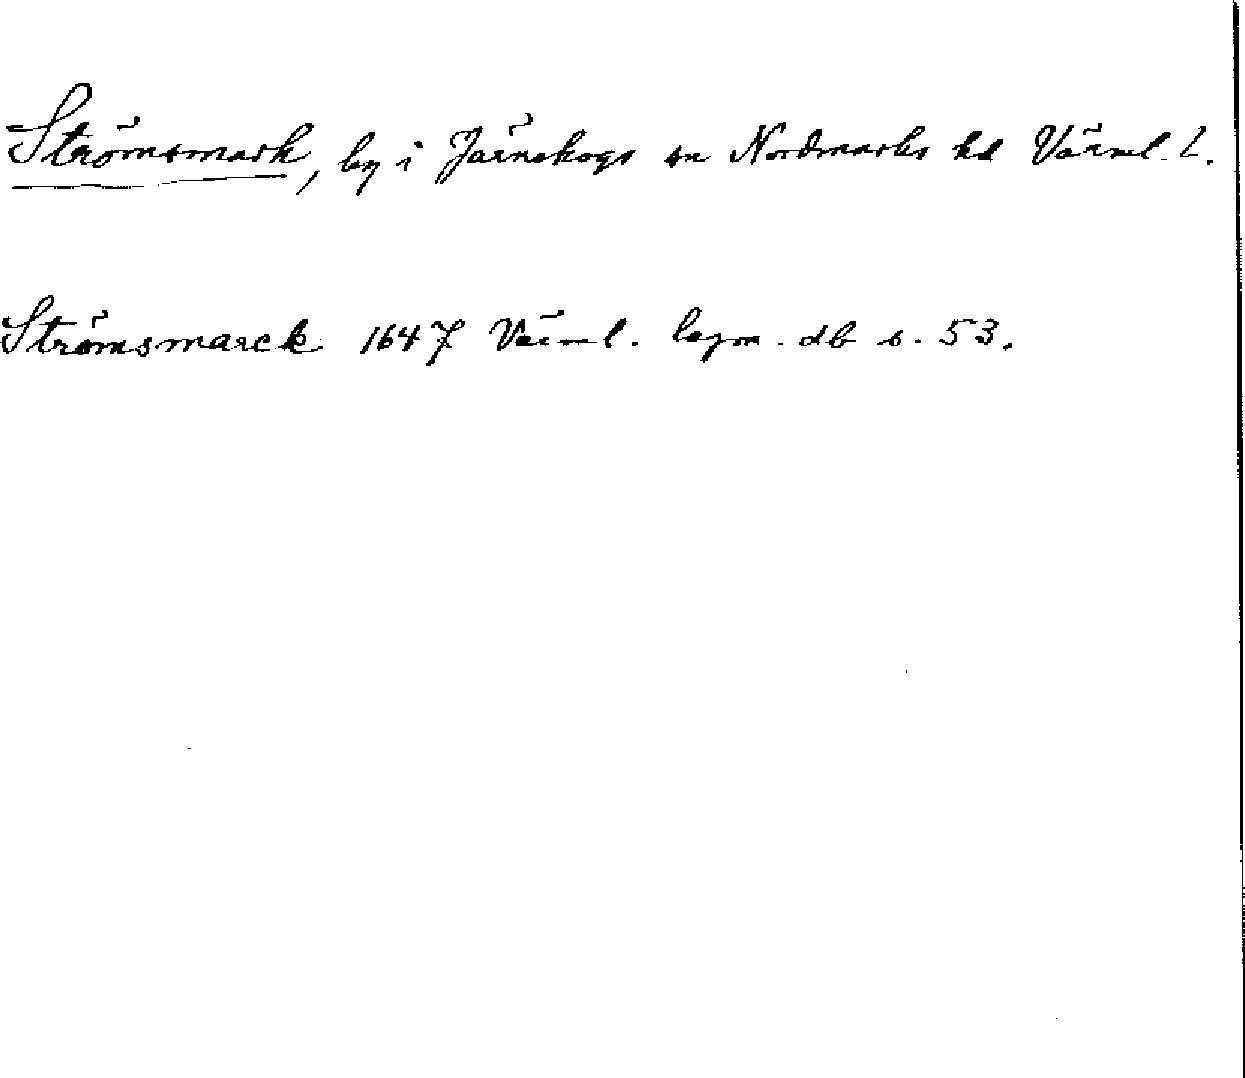 Strömsmark, by i Järnskogs sn Nordmarks hd Värml. l.
Strömsmarck 1647 Värml. lagm. db s. 53.